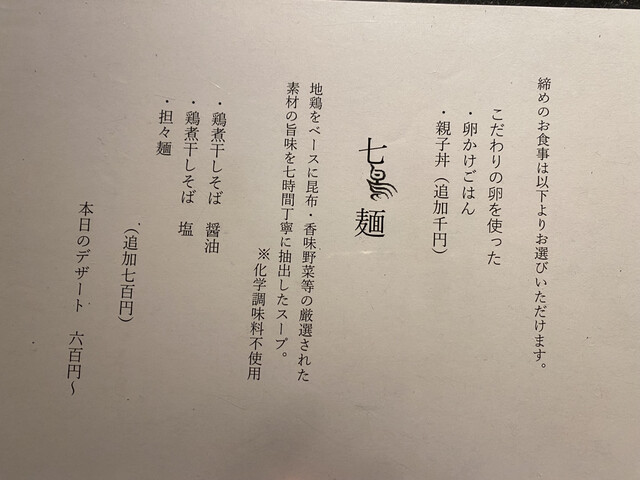 締めのお食事は以下よりお選びいただけます。
こだわりの卵を使った
・卵かけごはん
・親子丼（追加千円）
七鳥麺
地鶏をベースに昆布・香味野菜等の厳選された
素材の旨味を七時間丁寧に抽出したスープ。
※化学調味料不使用
・鶏煮干しそば　醤油
・鶏煮干しそば　塩
・担々麺
（追加七百円）
本日のデザート　六百円〜